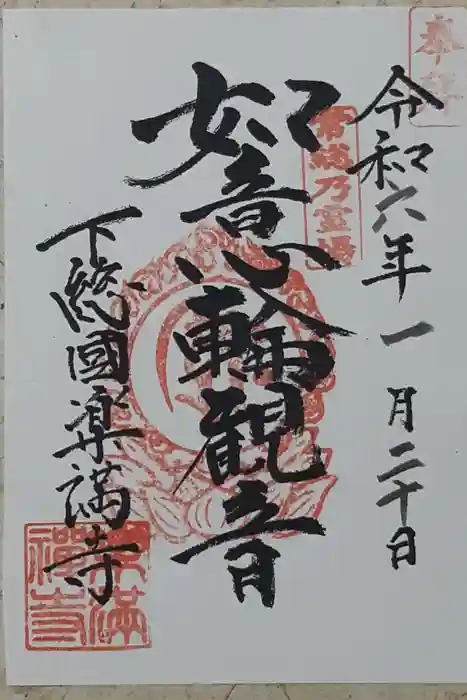 奉拝
令和六年一月二十日
常総乃霊場
如意輪観音
下総國楽満寺
楽満禅寺